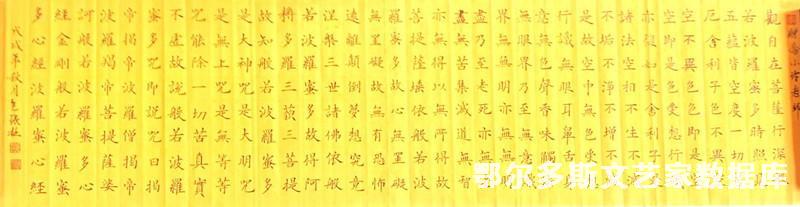 觀自在菩薩行深般
若波羅蜜多時照見
五蘊皆空度一切苦
厄舍利子色不異空
空不異色色即是空
空即是色受想行識
亦復如是舍利子是
諸法空相不生不滅
不垢不淨不增不減
是故空中無色無受想
行識無眼耳鼻舌身
意無色聲香味觸法
無眼界乃至無意識
界無無明亦無無明
盡乃至無老死亦無老死
盡無苦集滅道無智
亦無得以無所得故
菩提薩埵依般若波
羅蜜多故心無罣礙
無罣礙故無有恐怖
遠離顛倒夢想究竟
涅槃三世諸佛依般
若波羅蜜多故得阿
耨多羅三藐三菩提
故知般若波羅蜜多
是大神咒是大明咒
是無上咒是無等等
咒能除一切苦真實
不虛故說般若波羅
蜜多咒即說咒曰揭
帝揭帝波羅揭帝
波羅僧揭帝菩提薩婆
訶般若波羅蜜多心
經金剛般若波羅蜜
多心經般若波羅蜜多心經
戊戌年秋月
鄂尔多斯文艺家数据库